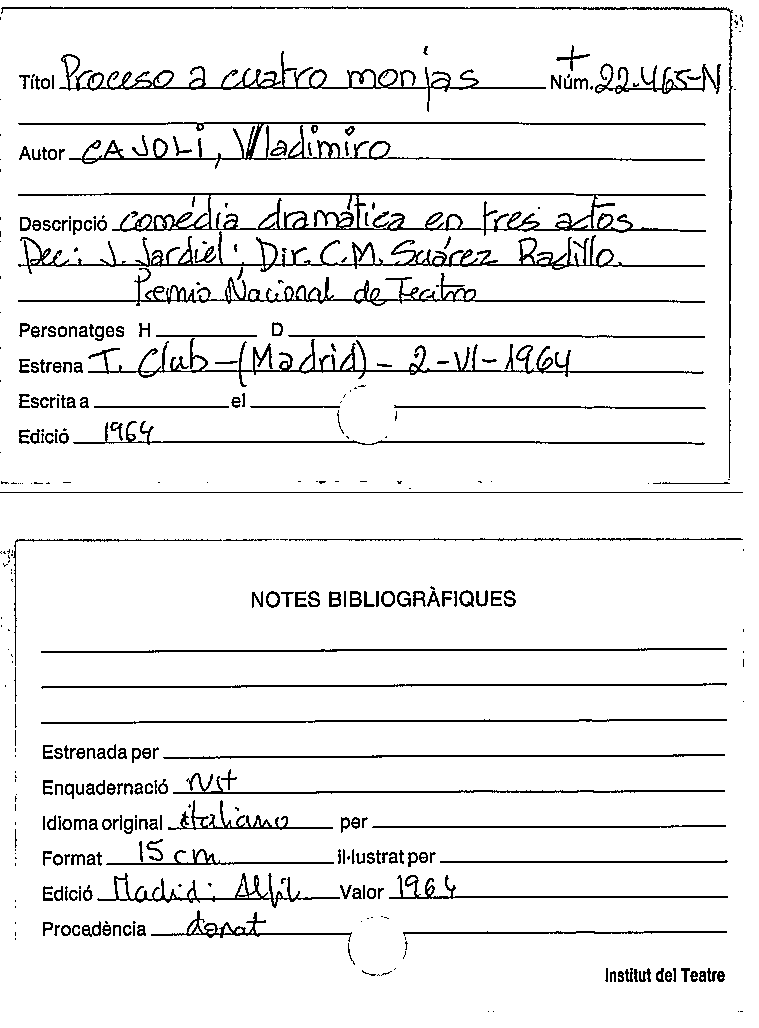 Títol Proceso a cuatro monjas + Núm. 22.465-N
Autor CAJOLI, Vladimiro
Descripció comédia dramática en tres actos
Dec: J. Jardiel; Dir. C.M. Suárez Radillo.
Premio Nacional de Teatro
Personatges H D
Estrena T. Club-(Madrid) - 2-VI-1964
Escrita a el
Edició 1964
NOTES BIBLIOGRÀFIQUES
Estrenada per
Enquadernació rúst
Idioma original italiano per
Format 15 cm il·lustrat per
Edició Madrid: Alfil Valor 1964
Procedència donat
Institut del Teatre